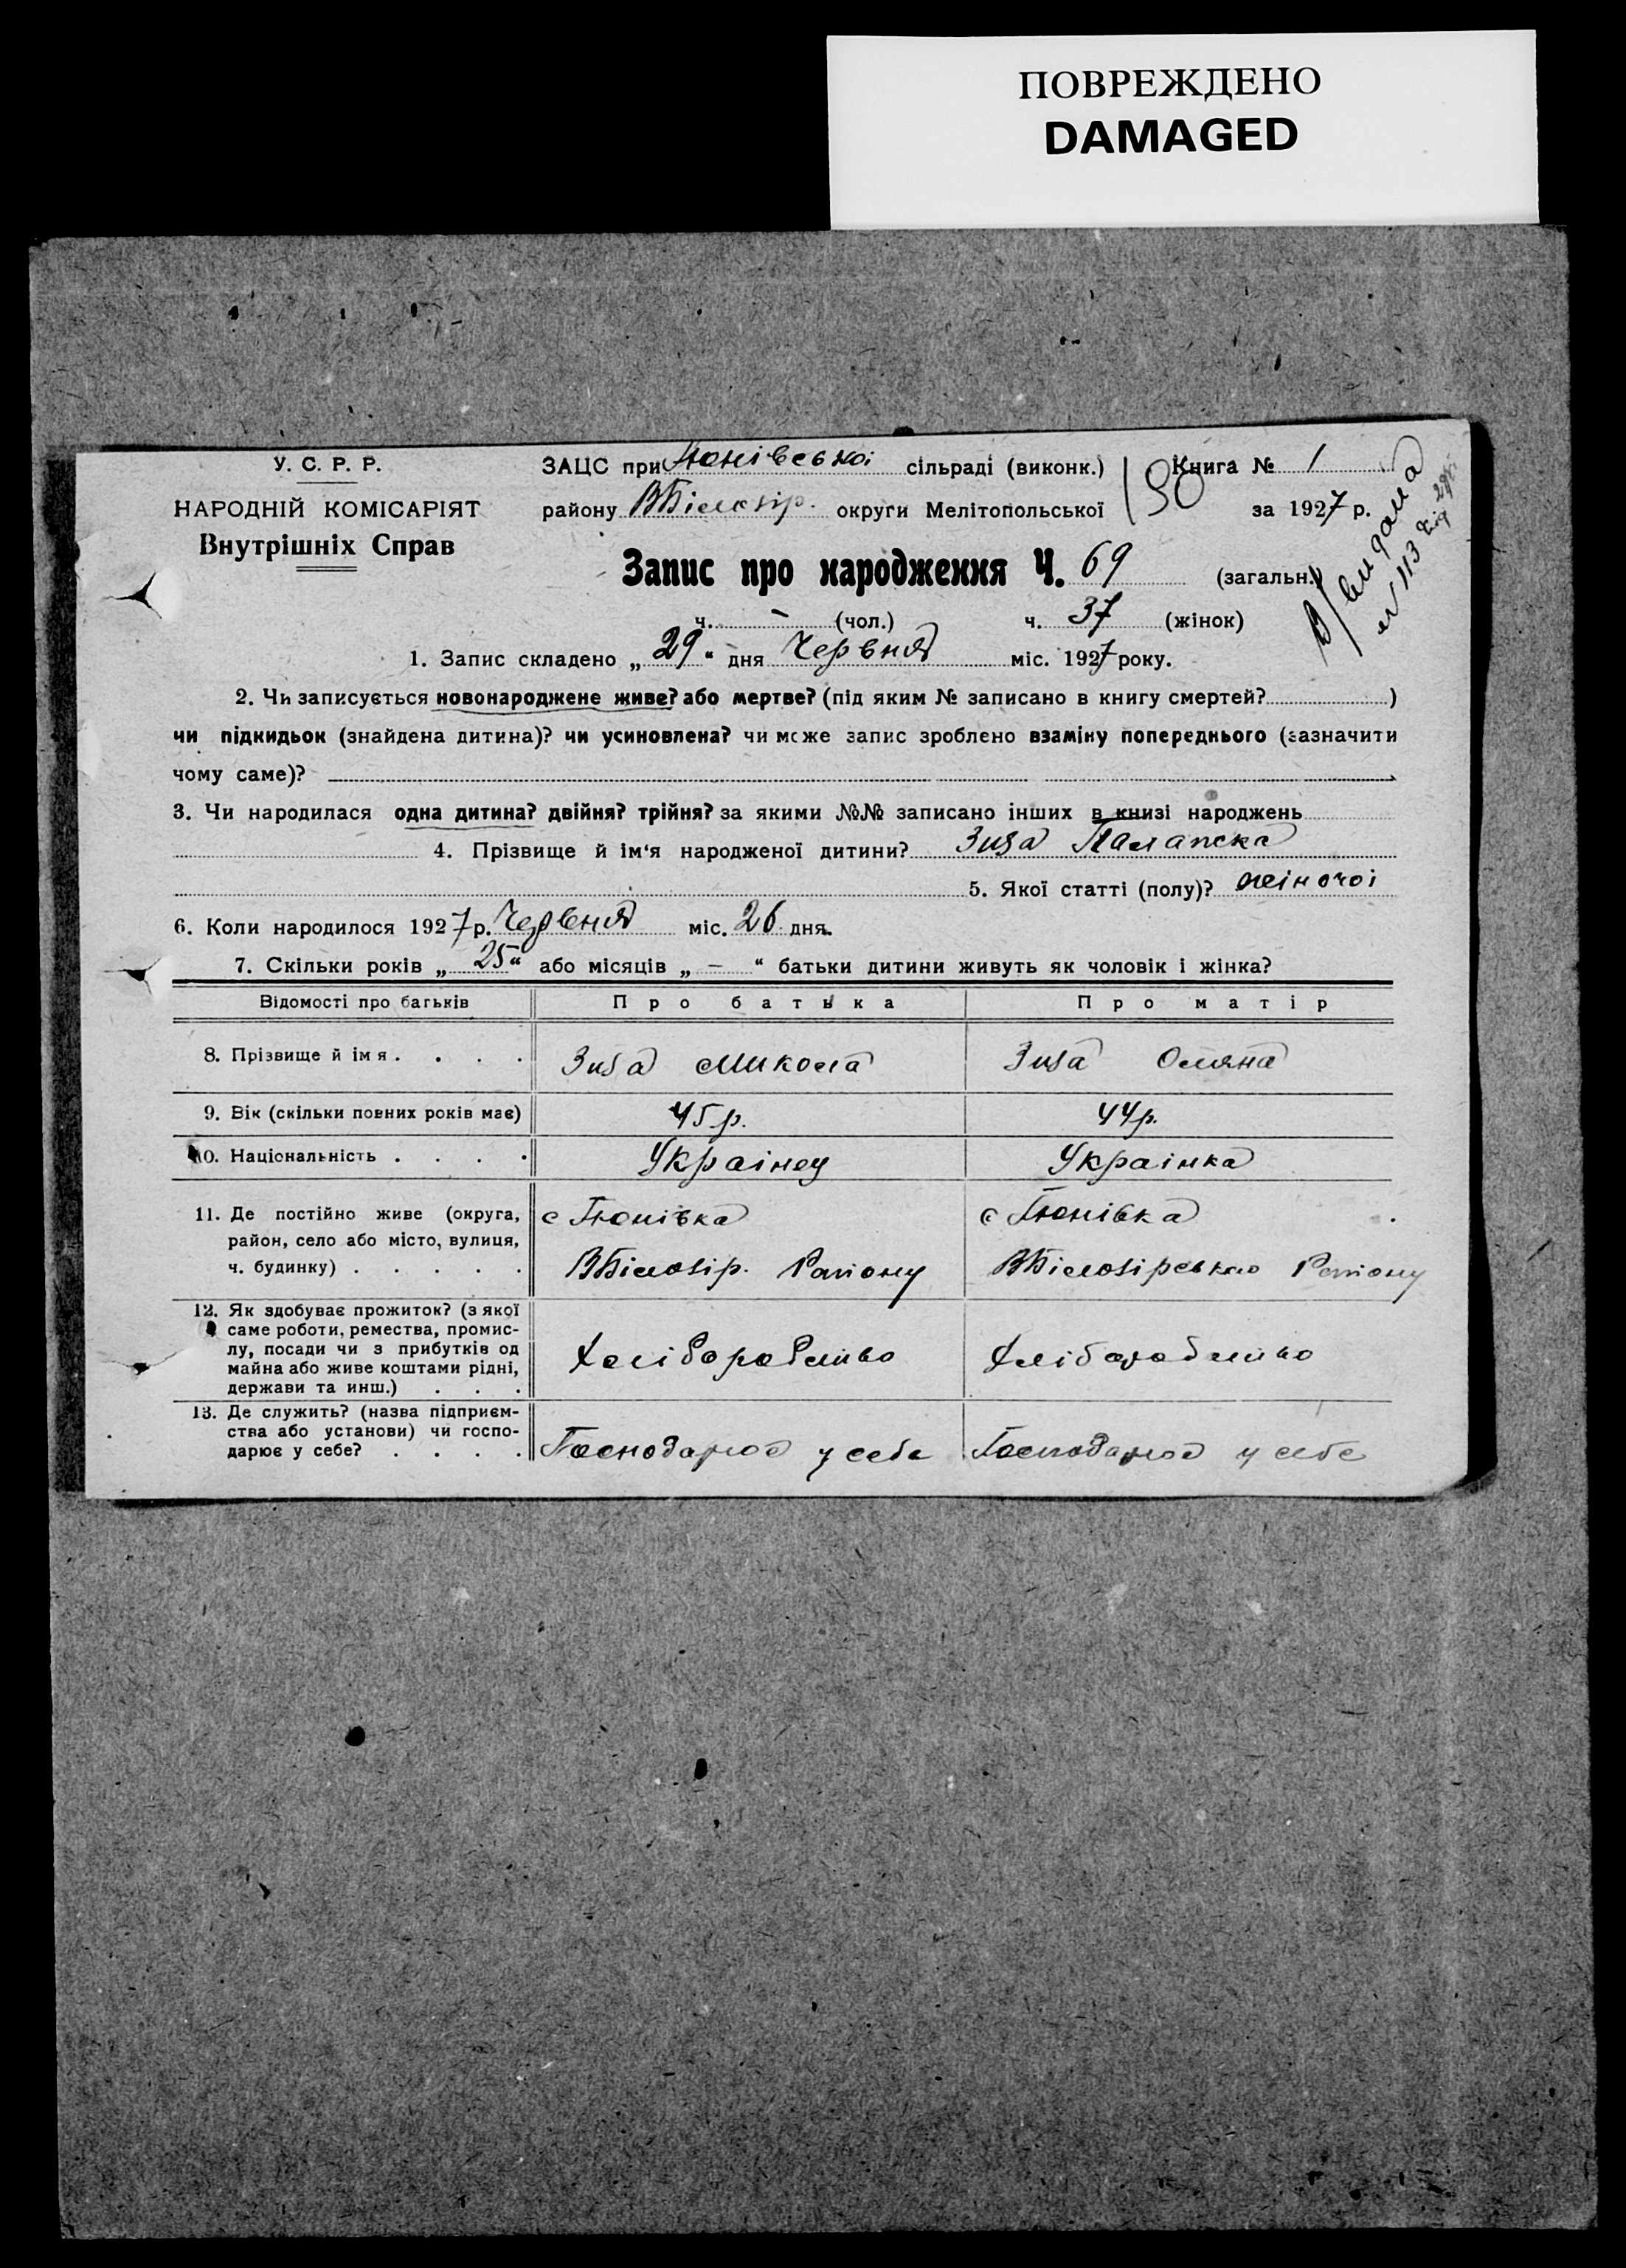 ПОВРЕЖДЕНО
DAMAGED
У. С. Р. Р.
НАРОДНІЙ КОМІСАРІЯТ
Внутрішніх Справ
ЗАЦС при Тюнівської сільраді (виконк.)
району ВБілозір. округи Мелітопольської
Книга № 1
за 1927 р.
90
Запис про народження Ч. 69 (загальн.)
ч. – (чол.) ч. 37 (жінок)
видана
№ 113
1. Запис складено „ 29 “ дня Червня міс. 1927 року.
2. Чи записується новонароджене живе? або мертве? (під яким № записано в книгу смертей? )
чи підкидьок (знайдена дитина)? чи усиновлена? чи може запис зроблено взаміну попереднього (зазначити
чому саме)?
3. Чи народилася одна дитина? двійня? трійня? за якими №№ записано інших в книзі народжень
4. Прізвище й ім‘я народженої дитини? Зиза Палажка
5. Якої статті (полу)? жіночої
6. Коли народилося 1927 р. Червня міс. 26 дня.
7. Скільки років „ 25 “ або місяців „ – “ батьки дитини живуть як чоловік і жінка?
Відомості про батьків Про батька Про матір
8. Прізвище й імя . . . . Зиза Микола Зиза Оляна
9. Вік (скільки повних років має) 45 р. 44 р.
10. Національність . . . . Українец Українка
11. Де постійно живе (округа, с Тюнівка с Тюнівка
район, село або місто, вулиця,
ч. будинку) . . . . . ВБілозір. Району ВБілозірського Району
12. Як здобуває прожиток? (з якої
саме роботи, ремества, промис-
лу, посади чи з прибутків од Хліборобство Хліборобство
майна або живе коштами рідні,
держави та инш.) . . .
13. Де служить? (назва підприєм-
ства або установи) чи госпо-
дарює у себе? . . . . Господарює у себе Господарює у себе